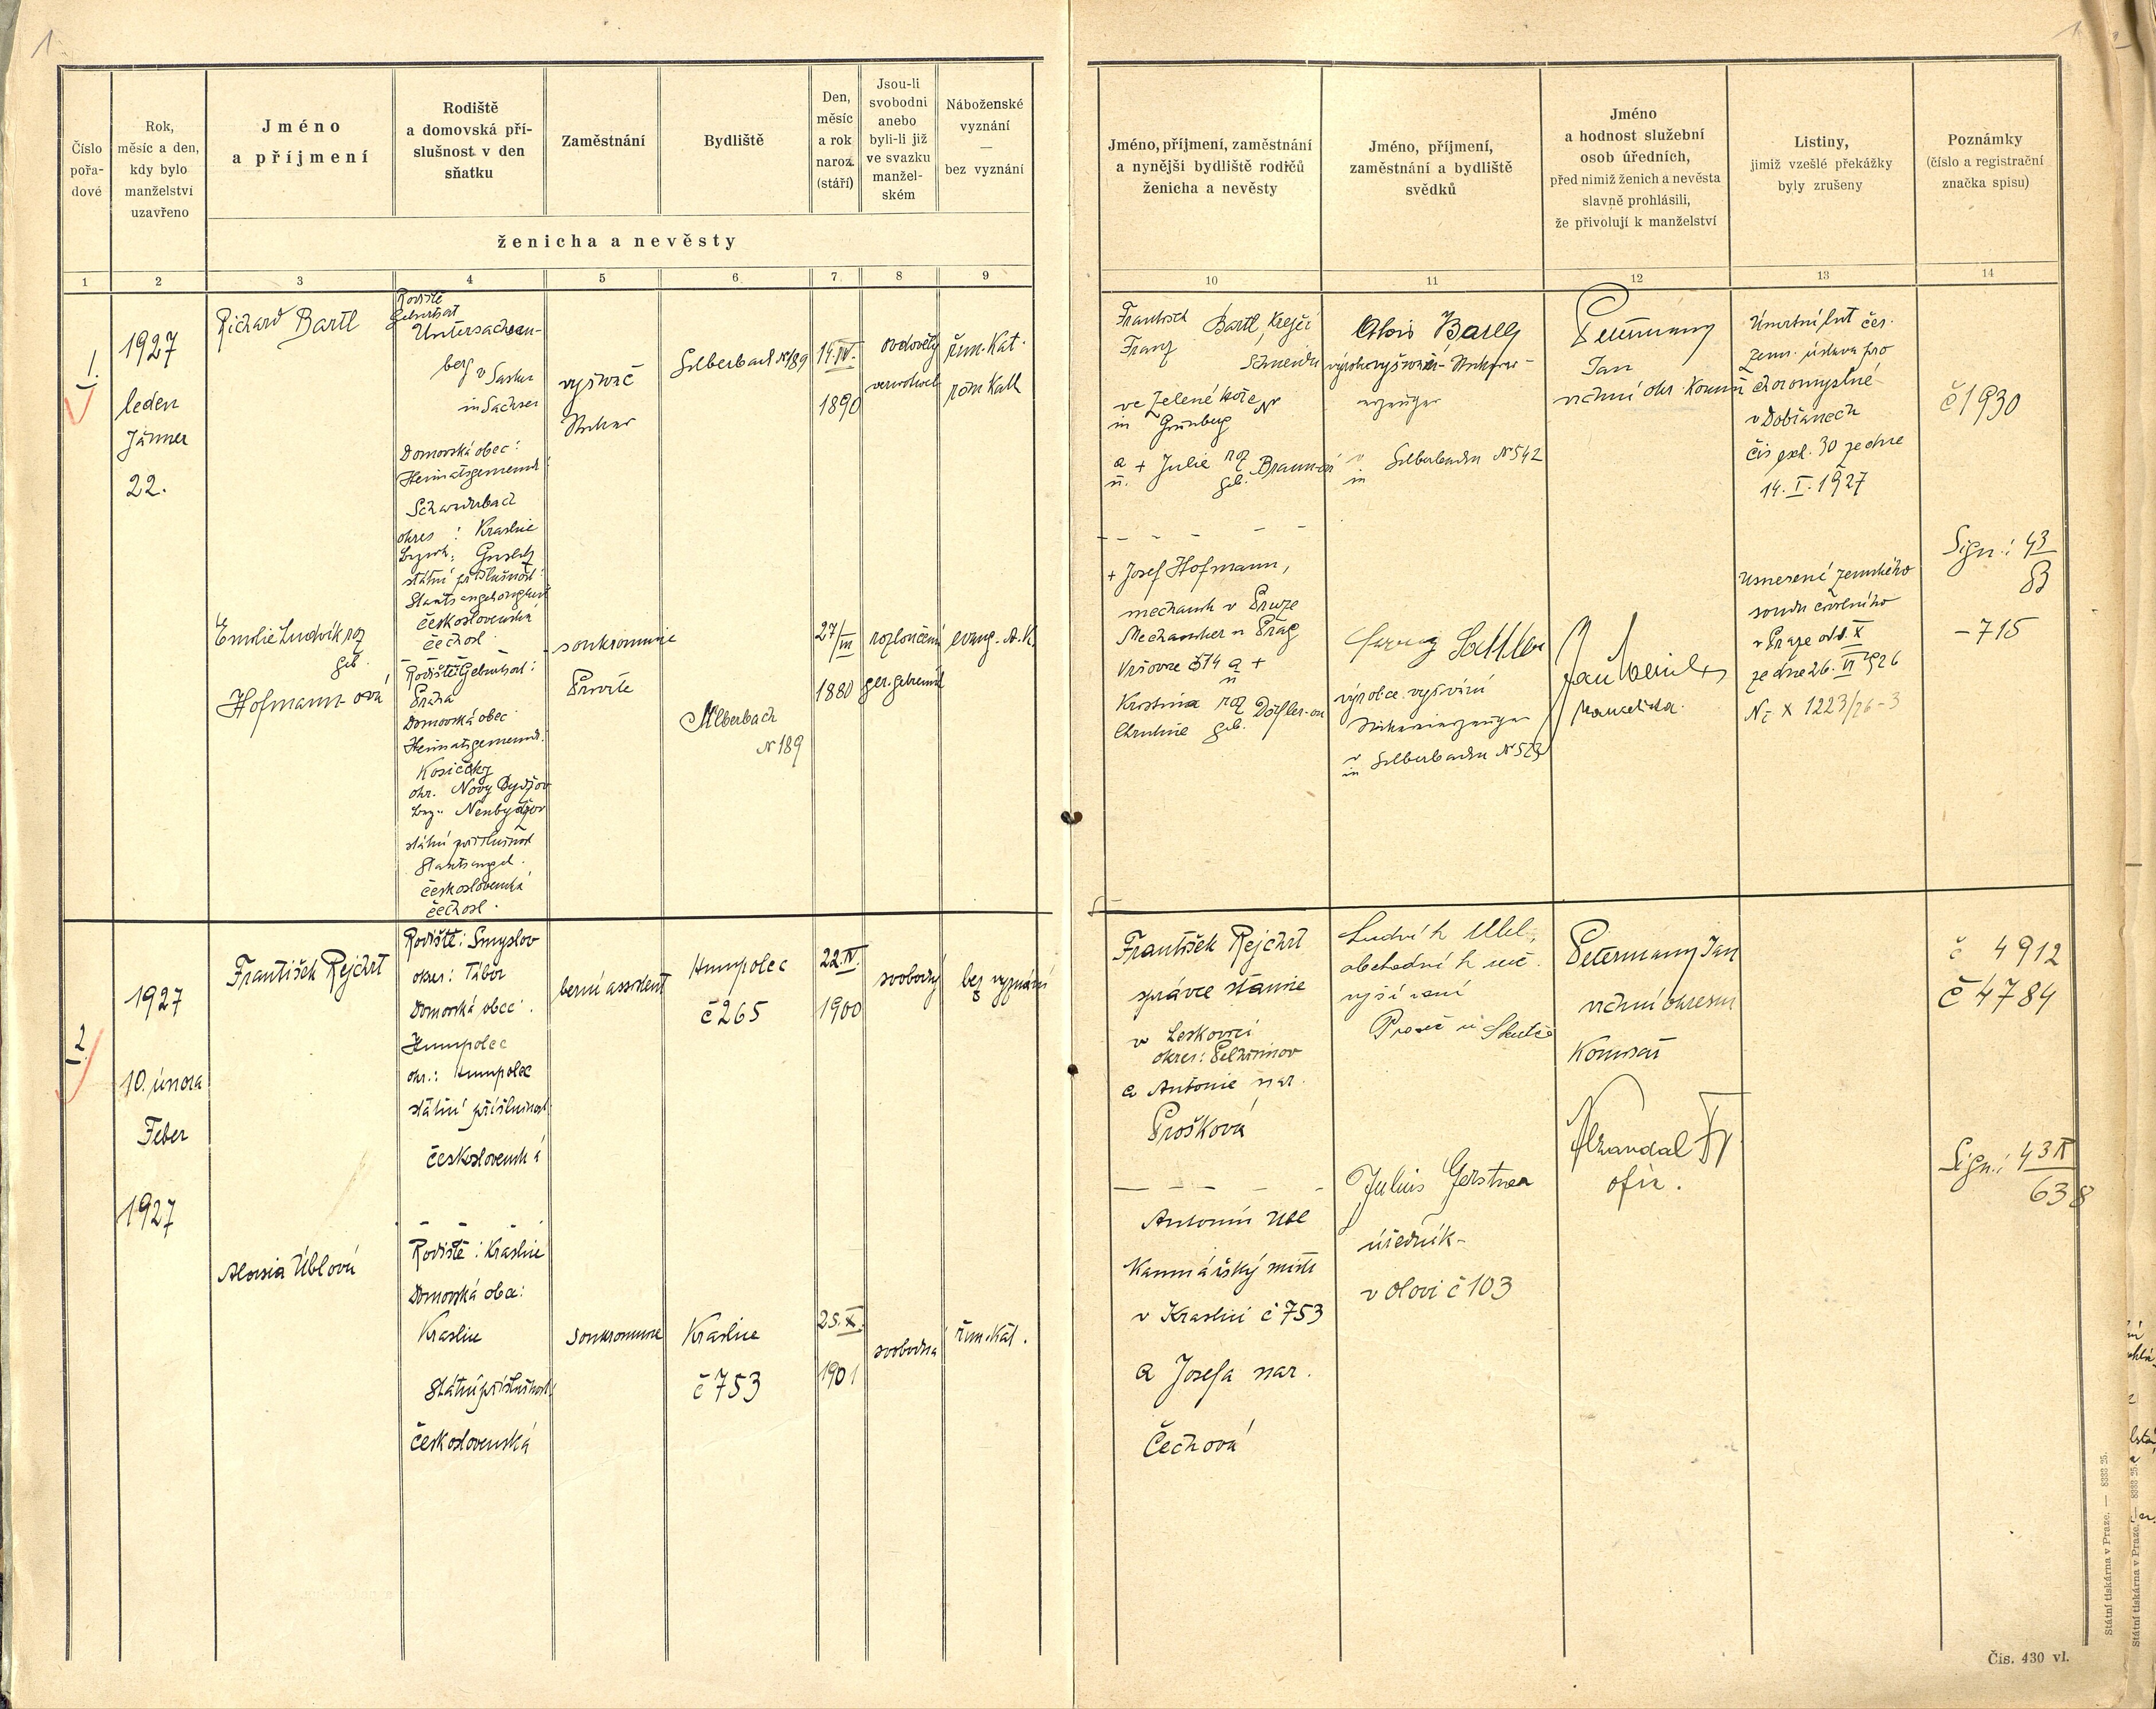 1
1
Číslo
pořa-
dové
Rok,
měsíc a den,
kdy bylo
manželství
uzavřeno
Jméno
a příjmení
Rodiště
a domovská pří-
slušnost v den
sňatku
Zaměstnání
Bydliště
Den,
měsíc
a rok
naroz.
(stáří)
Jsou-li
svobodni
anebo
byli-li již
ve svazku
manžel-
ském
Náboženské
vyznání
—
bez vyznání
ženicha a nevěsty
Jméno, příjmení, zaměstnání
a nynější bydliště rodičů
ženicha a nevěsty
Jméno, příjmení,
zaměstnání a bydliště
svědků
Jméno
a hodnost služební
osob úředních,
před nimiž ženich a nevěsta
slavně prohlásili,
že přivolují k manželství
Listiny,
jimiž vzešlé překážky
byly zrušeny
Poznámky
(číslo a registrační
značka spisu)
1 2 3 4 5 6 7 8 9 10 11 12 13 14
1.
1927
leden
Jänner
22.
Richard Bartl
Rodiště
Geburtsort
Untersachsen-
berg v Sasku
in Sachsen
Domovská obec:
Heimatsgemeinde
Schwaderbach
okres: Kraslice
Bezirk: Graslitz
státní příslušnost:
Staatsangehörigkeit
československá
čechosl.
vyšívač
Sticker
Silberbach N 189
14.IV.
1890
ovdovělý
verwitwet
řím. Kat.
röm Kath
František Bartl, Krejčí
Franz Schneider
ve Zelené hoře
in Grünberg
a + Julie roz Braun-ová
u. geb.
Alois
v Silberbachu N 542
in
Petermann
Jan
vrchní okr. Komisař
Úmrtní list čes.
zem. ústavu pro
choromyslné
v Dobřanech
čís exh. 30 ze dne
14. I. 1927
č 1930
Sign.: 43
83
Emilie Ludvík roz
geb.
Hofmann-ová
Rodiště: Geburtsort:
Praha
Domovská obec
Heimatsgemeinde:
Kosičky
okr. Nový Bydžov
Bez. Neubydžov
státní příslušnost
Staatsangeh.
československá
čechosl.
soukromnice
Private
Silberbach
N 189
27/III
1880
rozloučená
ger. getrennt
evang. A.K.
+ Josef Hofmann,
mechanik v Praze
Mechaniker in Prag
Vršovice 514 a +
u
Kristina roz Dörfler-ová
Christine geb.
Sattler
výrobce vyšívání
Stickereierzeuger
v Silberbachu N 523
in
Usnesení zemského
soudu civilního
v Praze odd. X
ze dne 26. VI 1926
Nc X 1223/26-3
- 715
2.
1927
10. února
Feber
1927
František Rejchrt
Rodiště: Smyslov
okres: Tábor
Domovská obec:
Humpolec
okr.: Humpolec
státní příslušnost:
československá
berní assistent
Humpolec
č 265
22.IV.
1900
svobodný
bez vyznání
František Rejchrt
správce stanice
v Leskovici
okres: Pelhřimov
a Antonie nar.
Prošková
Ludvík Übl,
obchodník
vyšívání
Proseč u Skutče
Petermann Jan
vrchní okresní
Komisař
ofic.
č 4912
č 4784
Sign.: 43 II
638
Aloisia Üblová
Rodiště: Kraslice
Domovská obec:
Kraslice
Státní příslušnost
československá
soukromnice
Kraslice
č 753
25.X.
1901
svobodná
řím. Kat.
Antonín Übl
Kamnářský mistr
v Kraslici č 753
a Josefa nar.
Čechová
Julius Gerstner
úředník
v Olovi č 103
Čís. 430 vl.
Státní tiskárna v Praze. — 8333 25.
Státní tiskárna v Praze. — 8333 25.